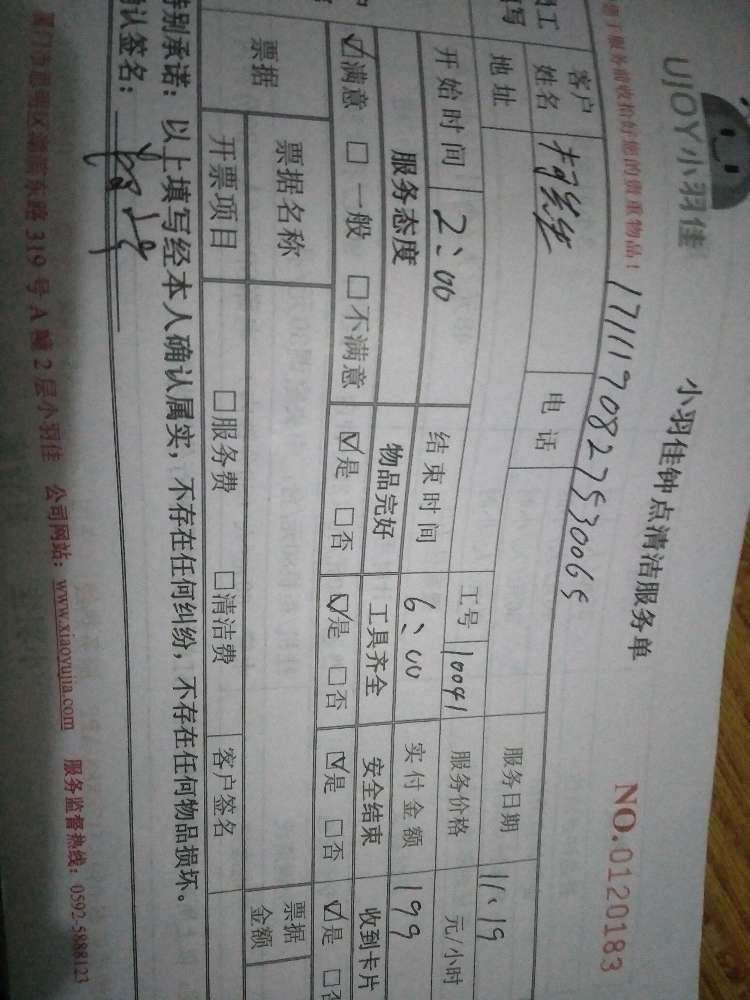 UJOY小羽佳
小羽佳钟点清洁服务单
NO.0120183
服务前收拾好您的贵重物品！
171119082753006S
客户姓名 电话 服务日期 11、19
地址 工号 10041 服务价格 元/小时
开始时间 2：00 结束时间 6：00 实付金额 199
服务态度 物品完好 工具齐全 安全结束 收到卡片
☑满意 □一般 □不满意 ☑是 □否 ☑是 □否 ☑是 □否 ☑是 □否
票据 票据名称 票据金额
开票项目 □服务费 □清洁费 客户签名
特别承诺：以上填写经本人确认属实，不存在任何纠纷，不存在任何物品损坏。
确认签名：
厦门市思明区湖滨东路319号A幢2层小羽佳 公司网站：www.xiaoyujia.com 服务监督热线：0592-5888123